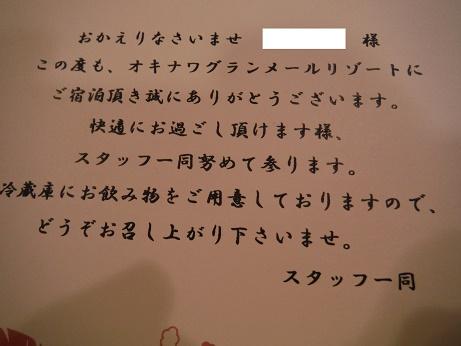 おかえりなさいませ 様
この度も、オキナワグランメールリゾートに
ご宿泊頂き誠にありがとうございます。
快適にお過ごし頂けます様、
スタッフ一同努めて参ります。
冷蔵庫にお飲み物をご用意しておりますので、
どうぞお召し上がり下さいませ。
スタッフ一同